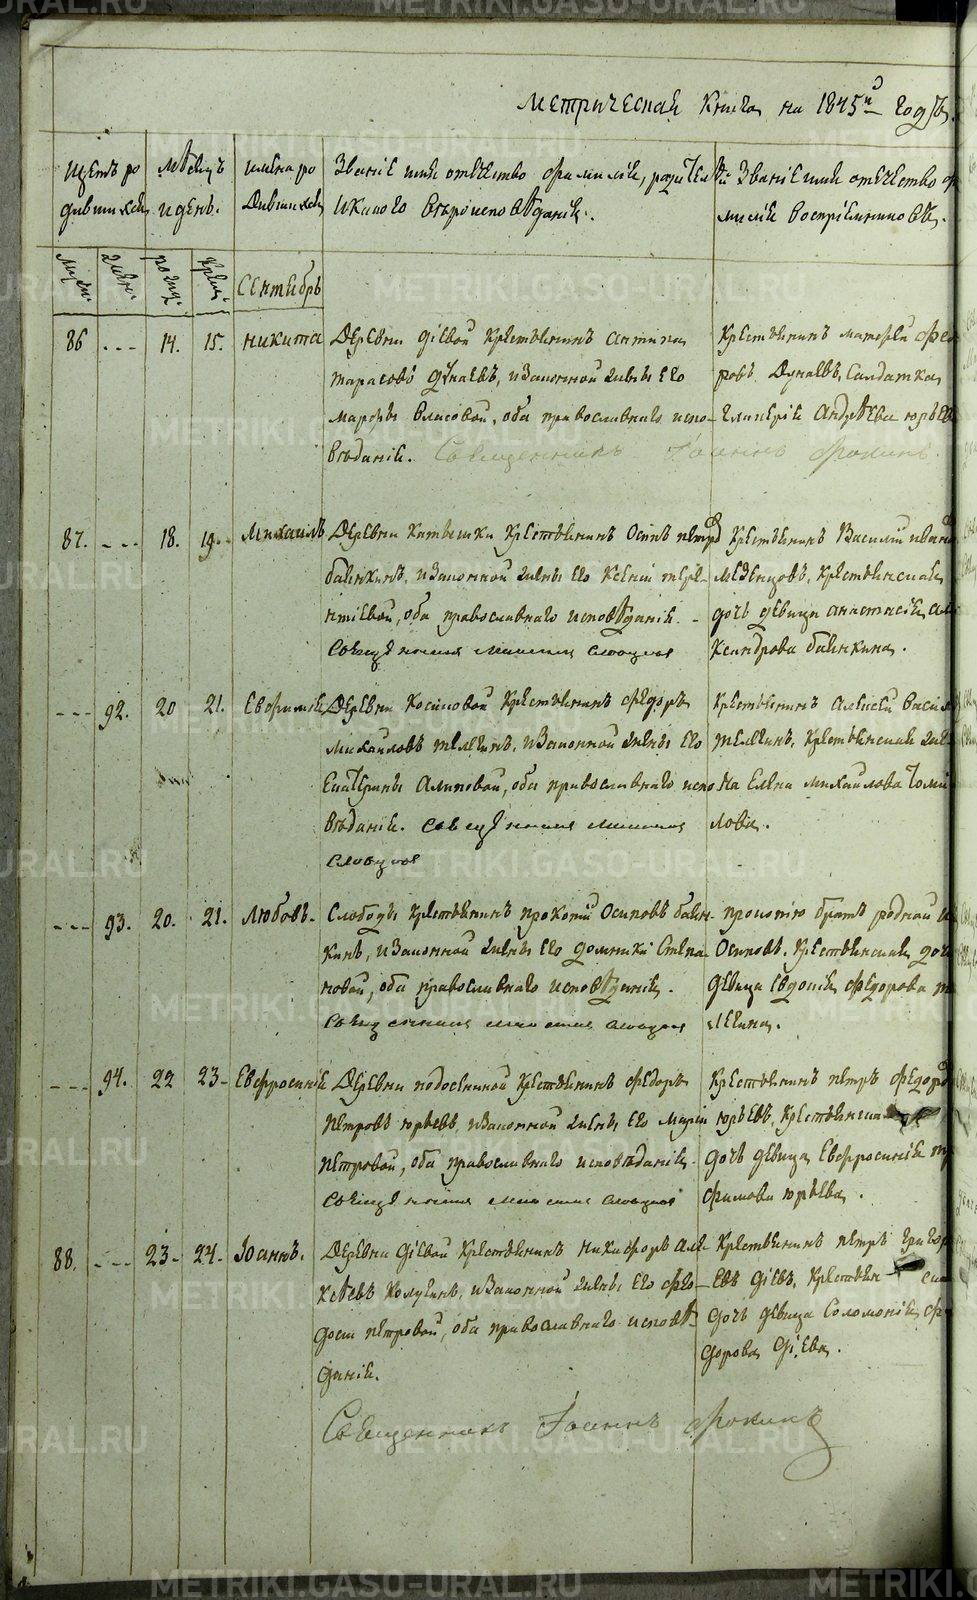 Метрическая Книга на 1845й годъ.
Щетъ ро
дившихся
Мѣсяцъ
и день.
имена ро
дившихся
Званіе имя отечество фамилія, родителей
и какого вѣроисповѣданія.
Званіе имя отечество фа
милія воспріемниковъ.
Муж:
Женс:
рожд:
Крещ:
Сентябрь
86 --- 14. 15. Никита
Деревни Діевой Крестьянинъ Антипа
Тарасовъ Дунаевъ, и законной жены его
Марфы Власовой, оба православнаго испо-
вѣданія. Священникъ Іоаннъ Фокинъ.
Крестьянинъ Матфей Фео
ровъ Дунаевъ, Салдатка
Гликерія Андрѣева Юрьев
87. --- 18. 19. Михаилъ
Деревни Катышки Крестьянинъ Осипъ Петро
Банкинъ, и законной жены его Ксеніи Тере-
нтіевой, оба православнаго исповѣданія.
Священникъ
Крестьянинъ Василий Иван
Мезенцовъ, Крестьянская
дочь девица Анастасія Але
ксандрова Банкина.
--- 92. 20 21. Евфимія
Деревни Косиковой Крестьянинъ Федоръ
Михайловъ Телегинъ, и законной жены его
Екатерины Алиповой, оба православнаго испо
вѣданія. Священникъ
Крестьянинъ Алексей Васил
Телегинъ, Крестьянская же
на Елена Михайлова Томи
лова.
--- 93. 20. 21. Любовь.
Слободы Крестьянинъ Прокопий Осиповъ Бан-
кинъ, и законной жены его Домники Степа-
новой, оба православнаго исповѣданія.
Священникъ
Прокопію братъ родной
Осиповъ, Крестьянская доч
девица Евдокія Федорова Те
легина.
--- 94. 22 23- Евфросинія
Деревни Подосениной Крестьянинъ Федоръ
Петровъ Юрьевъ, и законной жены его Маріи
Петровой, оба православнаго исповѣданія.
Священникъ
Крестьянинъ Петръ Федоро
Юрьевъ, Крестьянская
дочь девица Евфросинія Тр
фимова Юрьева.
88. --- 23- 24. Іоаннъ.
Деревни Діевой Крестьянинъ Никифоръ Але-
ксѣевъ Колугинъ, и законной жены его Фео-
досьи Петровой, оба православнаго исповѣ-
данія.
Крестьянинъ Петръ Григор
евъ Діевъ, Крестьян ска
дочь девица Соломонія Фе
дорова Діева.
Священникъ Іоаннъ Фокинъ
METRIKI.GASO-URAL.RU